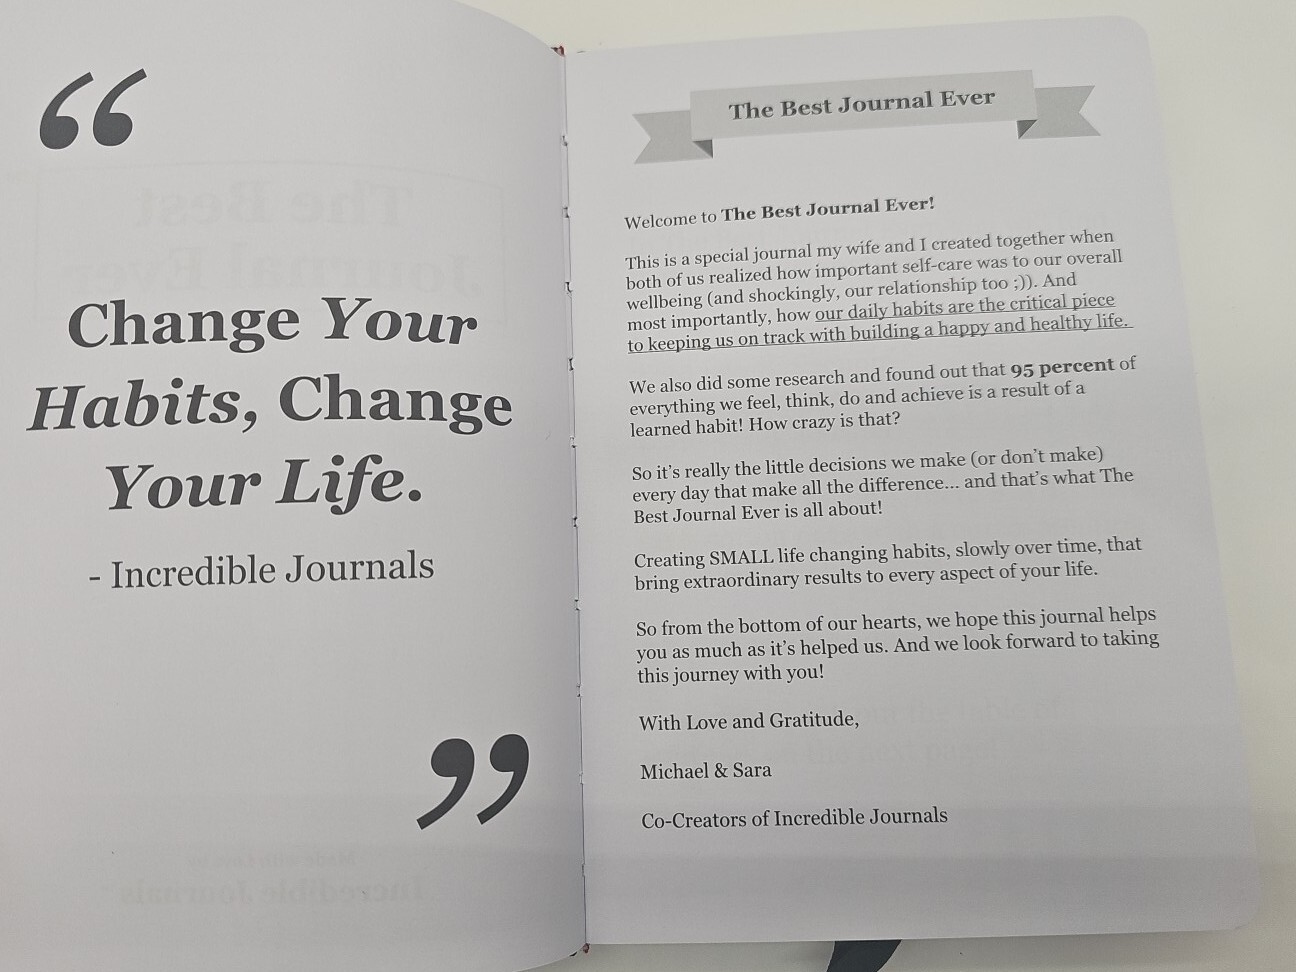 “
Change Your
Habits, Change
Your Life.
- Incredible Journals
”
The Best Journal Ever
Welcome to The Best Journal Ever!
This is a special journal my wife and I created together when
both of us realized how important self-care was to our overall
wellbeing (and shockingly, our relationship too ;)). And
most importantly, how our daily habits are the critical piece
to keeping us on track with building a happy and healthy life.
We also did some research and found out that 95 percent of
everything we feel, think, do and achieve is a result of a
learned habit! How crazy is that?
So it’s really the little decisions we make (or don’t make)
every day that make all the difference... and that’s what The
Best Journal Ever is all about!
Creating SMALL life changing habits, slowly over time, that
bring extraordinary results to every aspect of your life.
So from the bottom of our hearts, we hope this journal helps
you as much as it’s helped us. And we look forward to taking
this journey with you!
With Love and Gratitude,
Michael & Sara
Co-Creators of Incredible Journals